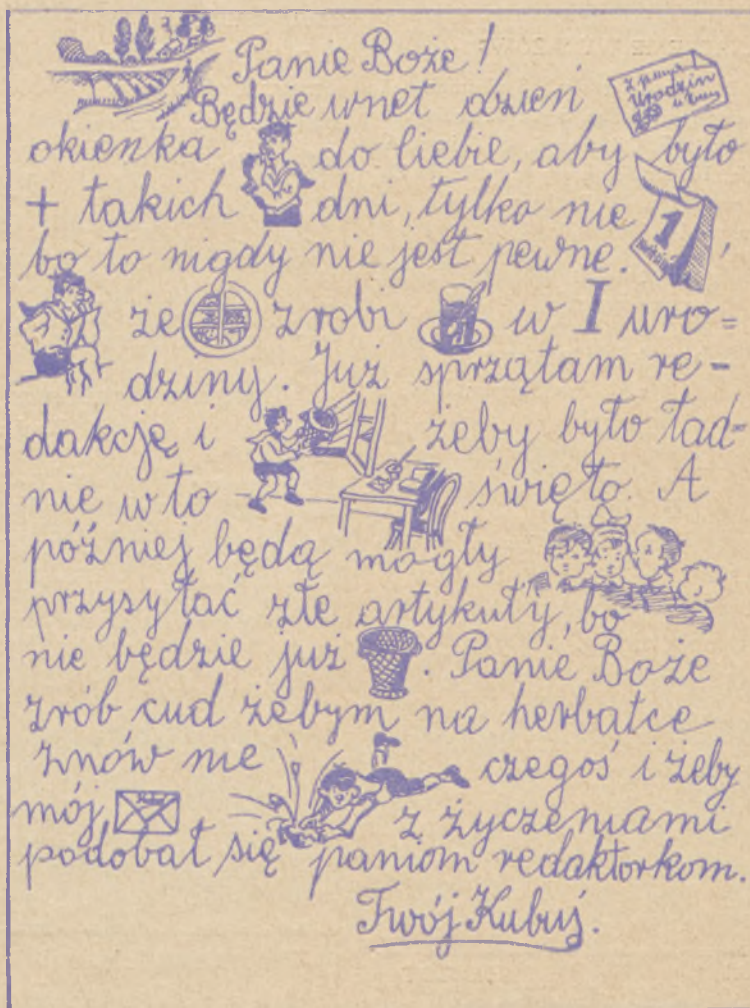 Panie Boże!
Będzie wnet dzień
Urodzin
okienka do Ciebie, aby było
+ takich dni, tylko nie 1
bo to nigdy nie jest pewne.
że zrobi w I uro=
dziny. Już sprzątam re-
dakcję i żeby było ład=
nie w to święto. A
później będą mogły
przysyłać złe artykuły, bo
nie będzie już . Panie Boże
zrób cud żebym na herbatce
znów nie czegoś i żeby
mój z życzeniami
podobał się paniom redaktorkom.
Twój Kubuś.